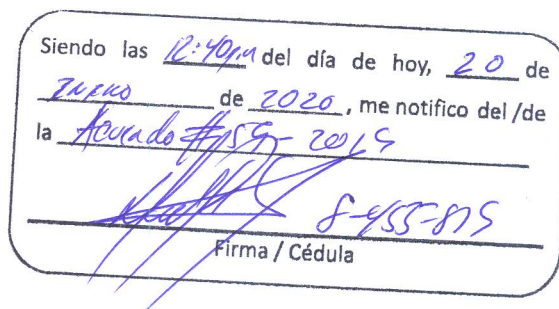 Siendo las 12:40pm del día de hoy, 20 de
Enero de 2020, me notifico del /de
la Acuerdo #159-2019
8-455-819
Firma / Cédula